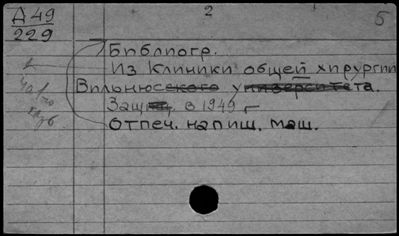 Д 49
229
2
5
Библиогр.
Из Клиники общей хирургии
Вильнюсского университета.
Защ. в 1949 г
Отпеч. напиш. маш.